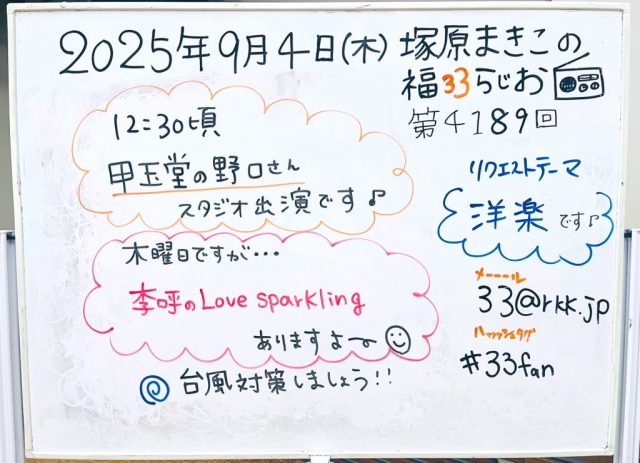 2025年9月4日(木) 塚原まきこの
福33らじお
第4189回
12:30頃
甲玉堂の野口さん
スタジオ出演です♪
リクエストテーマ
洋楽です♪
木曜日ですが・・・
李呼のLove sparkling
ありますよ〜
メーーール
33@rkk.jp
ハッッシュタグ
#33fan
台風対策しましょう!!